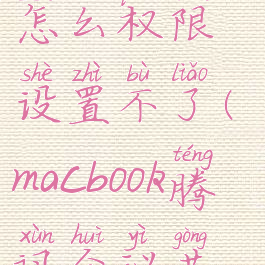 怎么权限
shè zhì bù liǎo
设置不了(
téng
macbook腾
xùn huì yì gòng
讯会议共